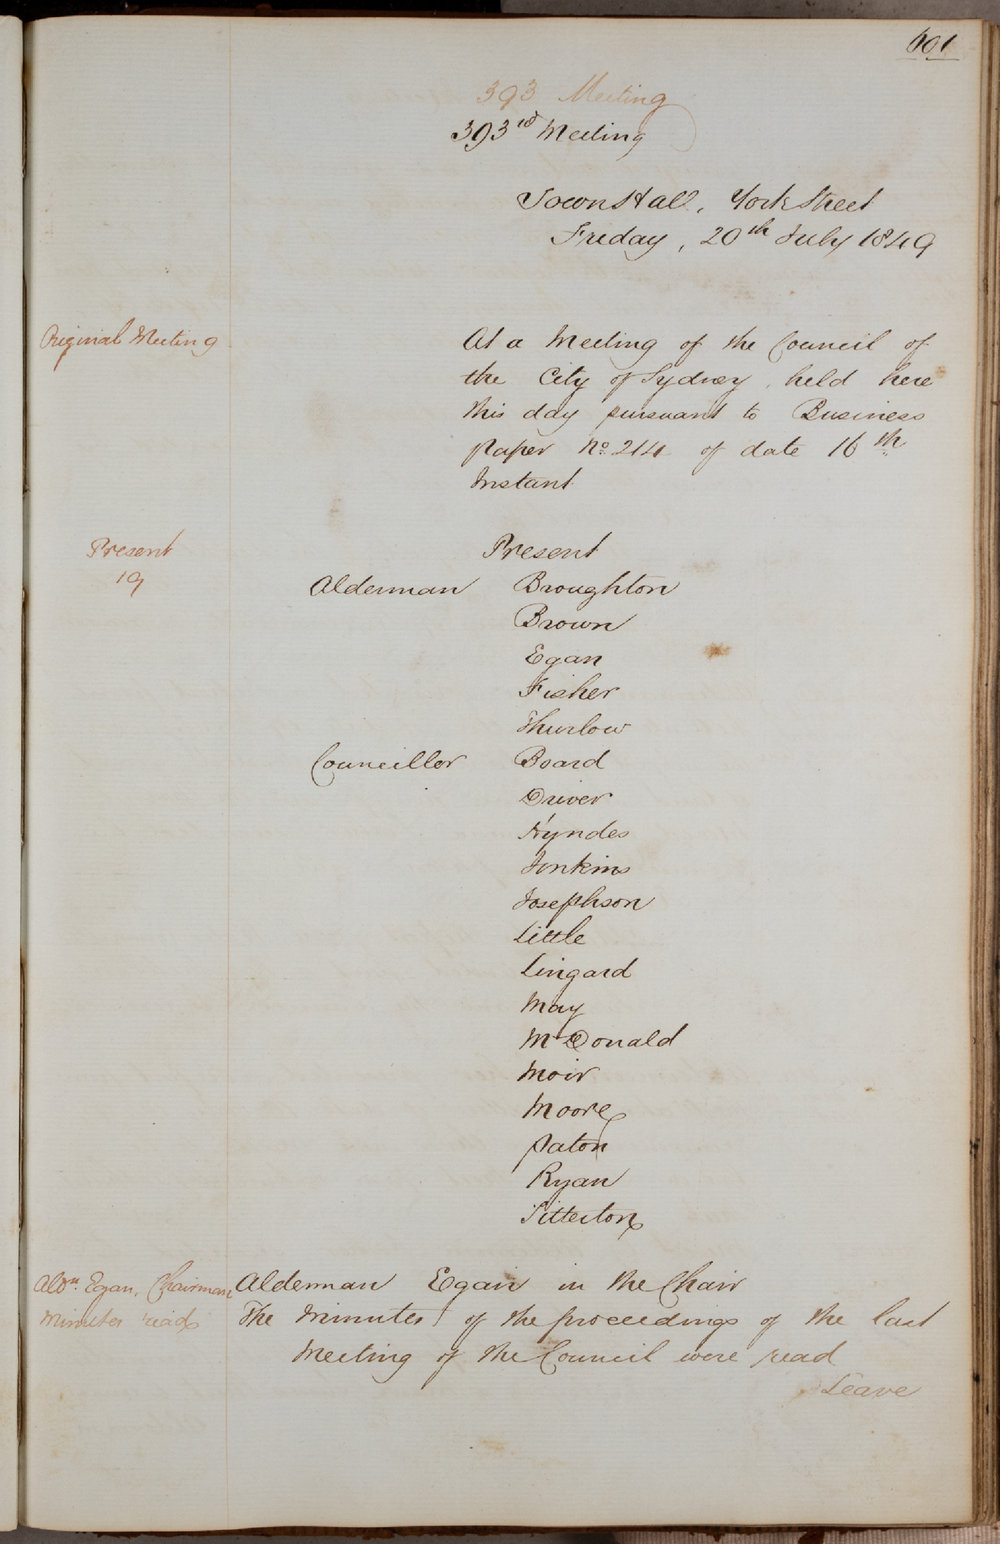 601
393 Meeting
393rd Meeting
Town Hall, York Street
Friday, 20th July 1849
Original Meeting
At a Meeting of the Council of
the City of Sydney, held here
this day pursuant to Business
Paper No. 214 of date 16th
Instant
Present
19
Present
Alderman Broughton
Brown
Egan
Fisher
Thurlow
Councillor Board
Driver
Hyndes
Jenkins
Josephson
Little
Lingard
May
McDonald
Moir
Moore
Paton
Ryan
Titterton
Aldn. Egan, Chairman
Minutes read
Alderman Egan in the Chair
The Minutes of the proceedings of the last
Meeting of the Council were read
Leave